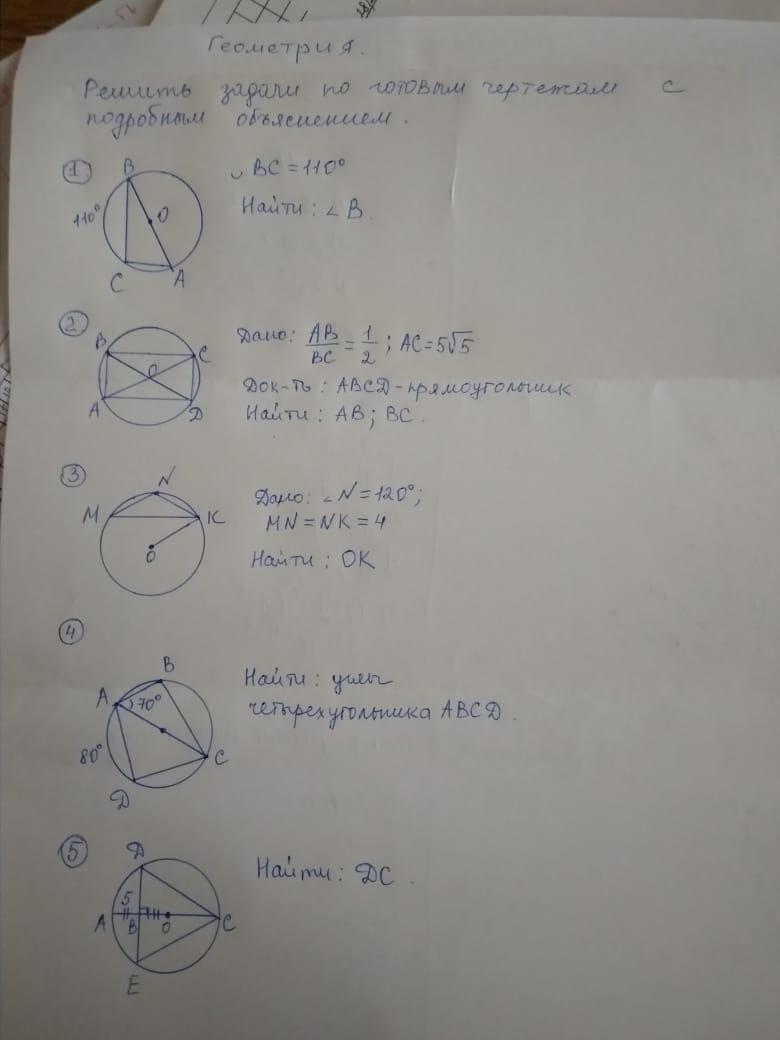 Геометрия.
Решить задачи по готовым чертежам с
подробным объяснением.
1
B
110°
O
C
A
◡ BC = 110°
Найти: ∠B.
2
B
C
O
A
D
Дано: AB/BC = 1/2; AC = 5√5
Док-ть: ABCD - прямоугольник
Найти: AB; BC.
3
N
M
K
O
Дано: ∠N = 120°;
MN = NK = 4
Найти: OK
4
B
A
70°
80°
C
D
Найти: углы
четырехугольника ABCD.
5
D
5
A
B
O
C
E
Найти: DC.